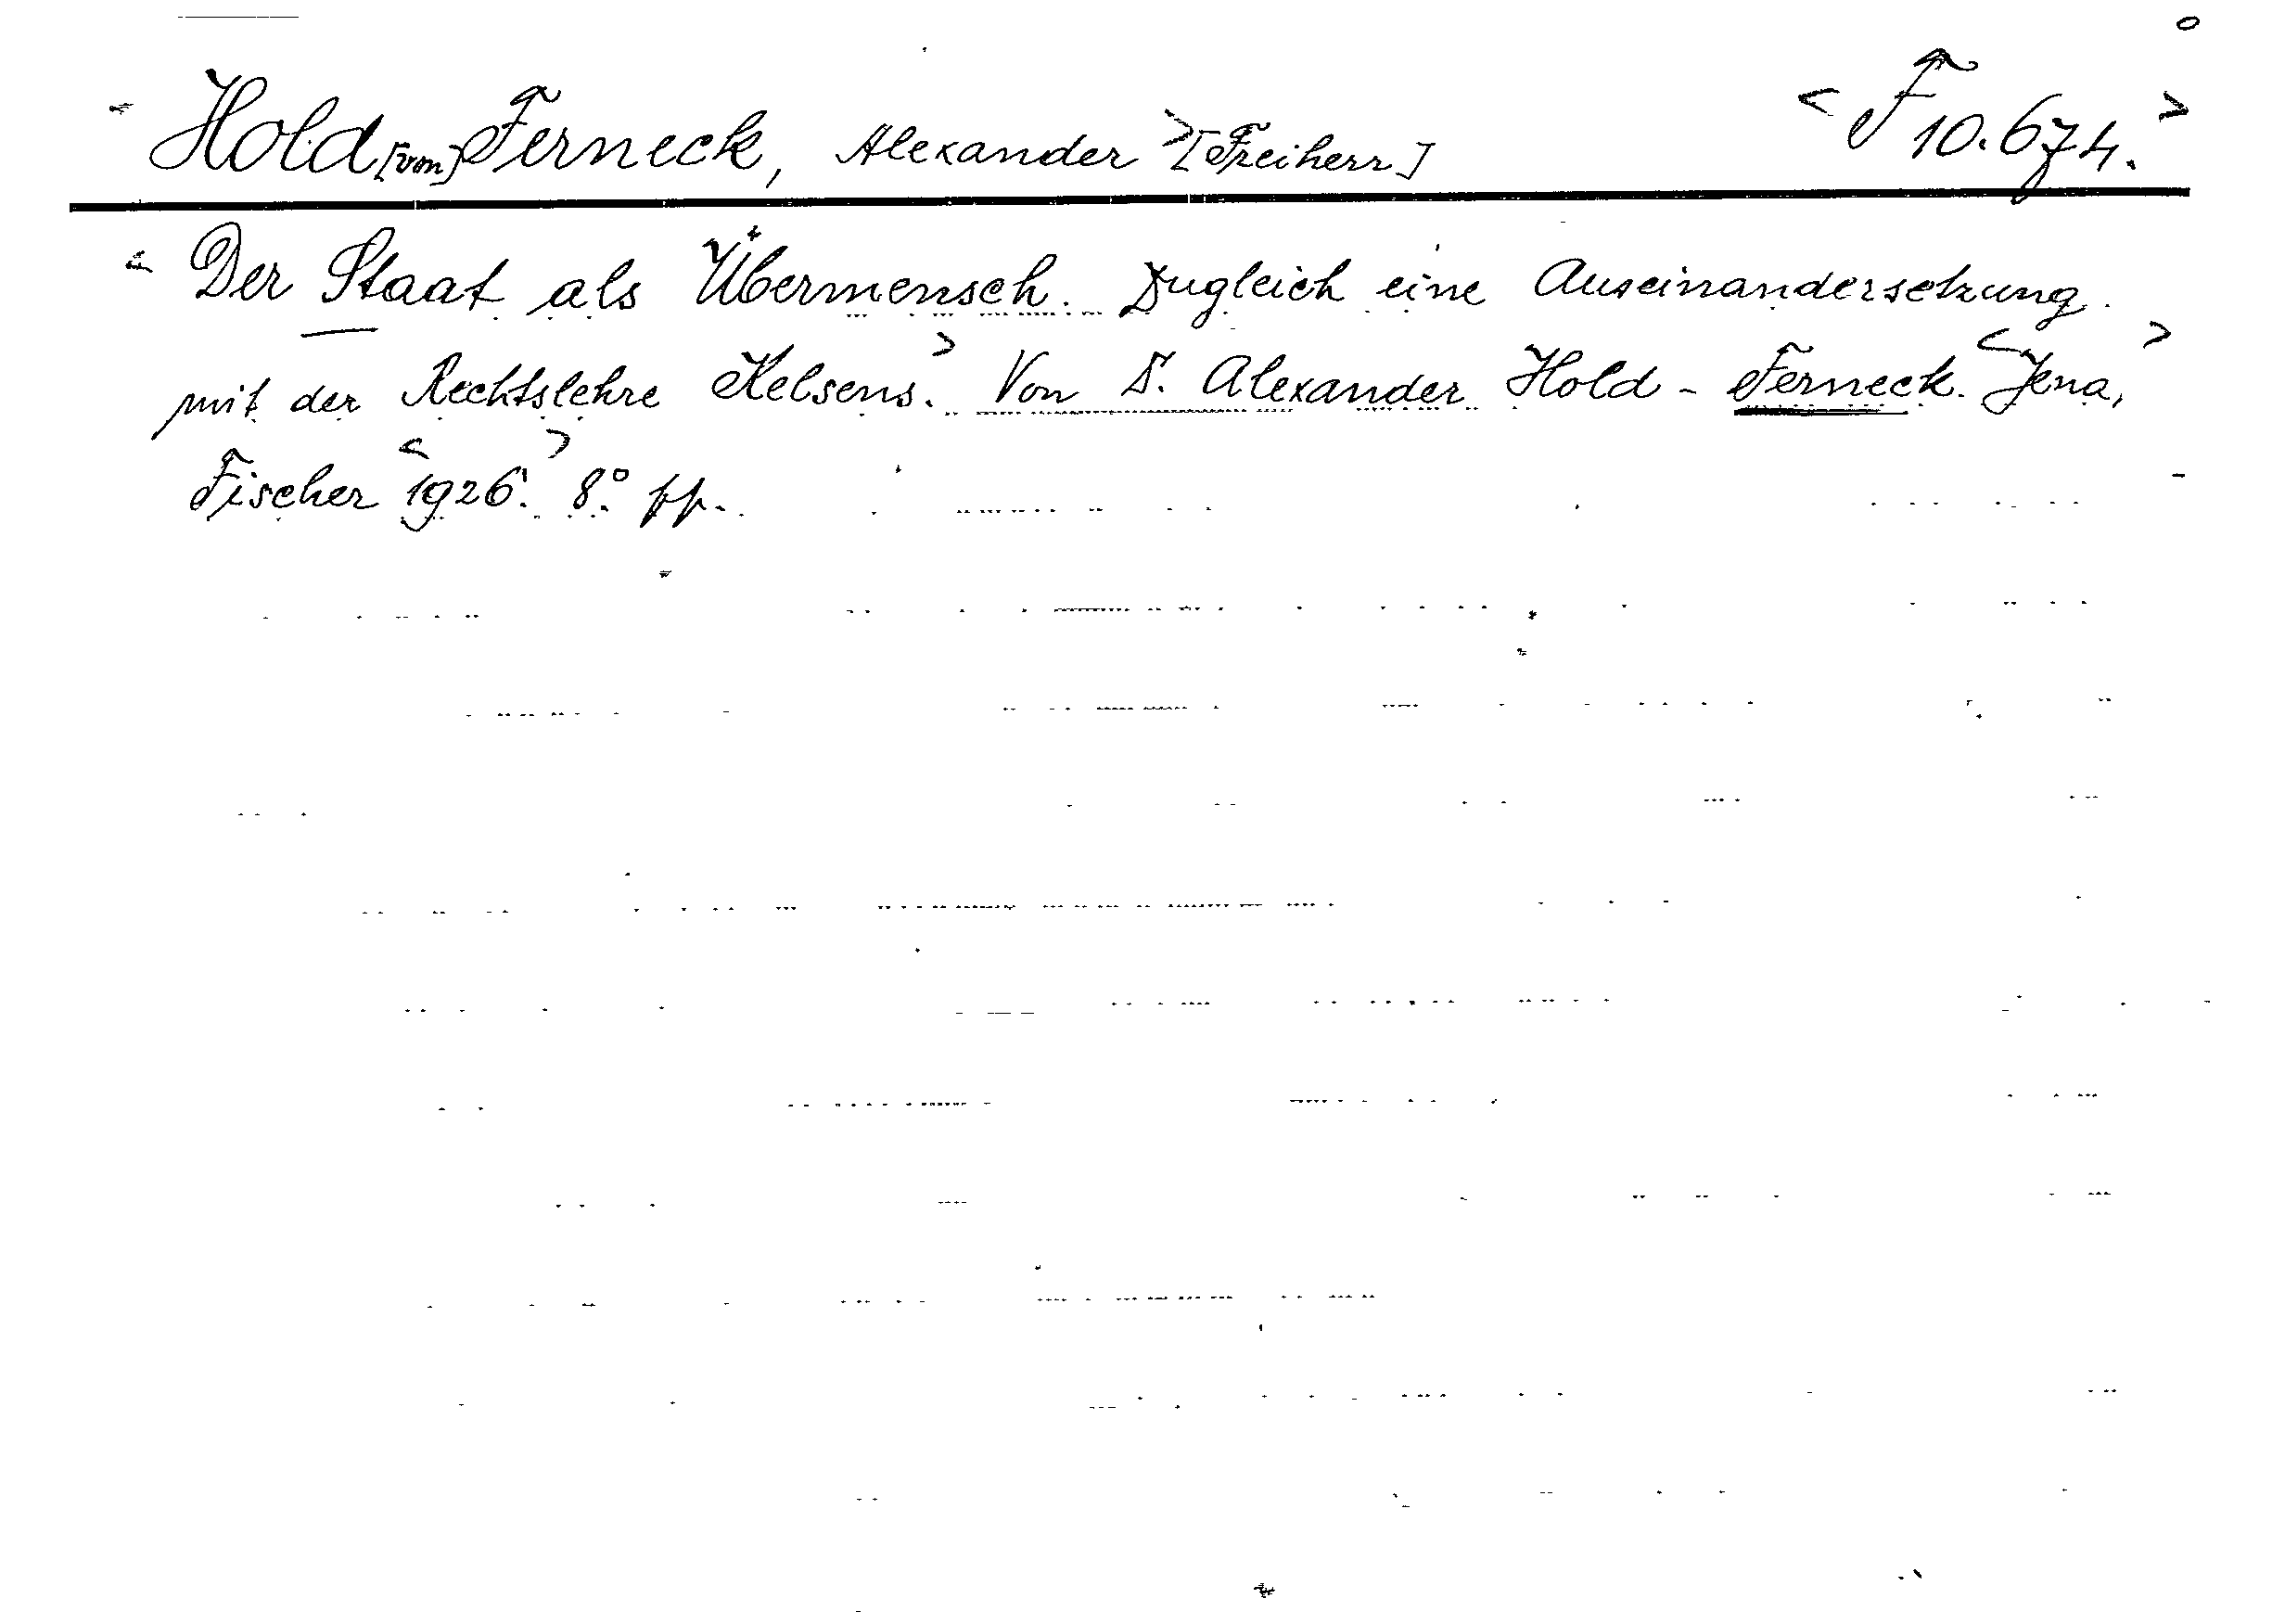 <Hold [von] Ferneck, Alexander> [Freiherr] <F 10.674.>
<Der Staat als Übermensch. Zugleich eine Auseinandersetzung
mit der Rechtslehre Kelsens.> Von D. Alexander Hold-Ferneck. <Jena,>
Fischer <1926.> 8° pp.